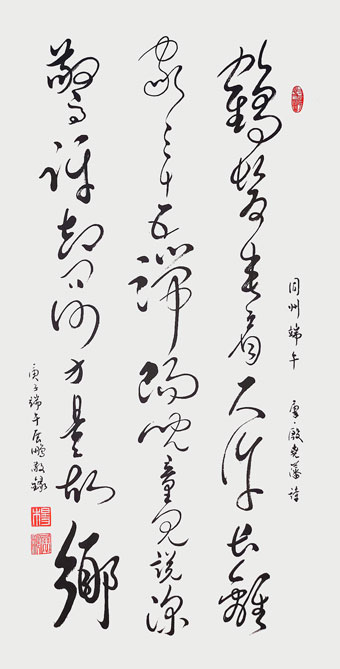 同州端午 唐·殷堯藩詩
鶴髮垂肩尺許長離
家三十五端陽兒童見說深
驚訝却問何方是故鄉
庚子端午鵬敬錄